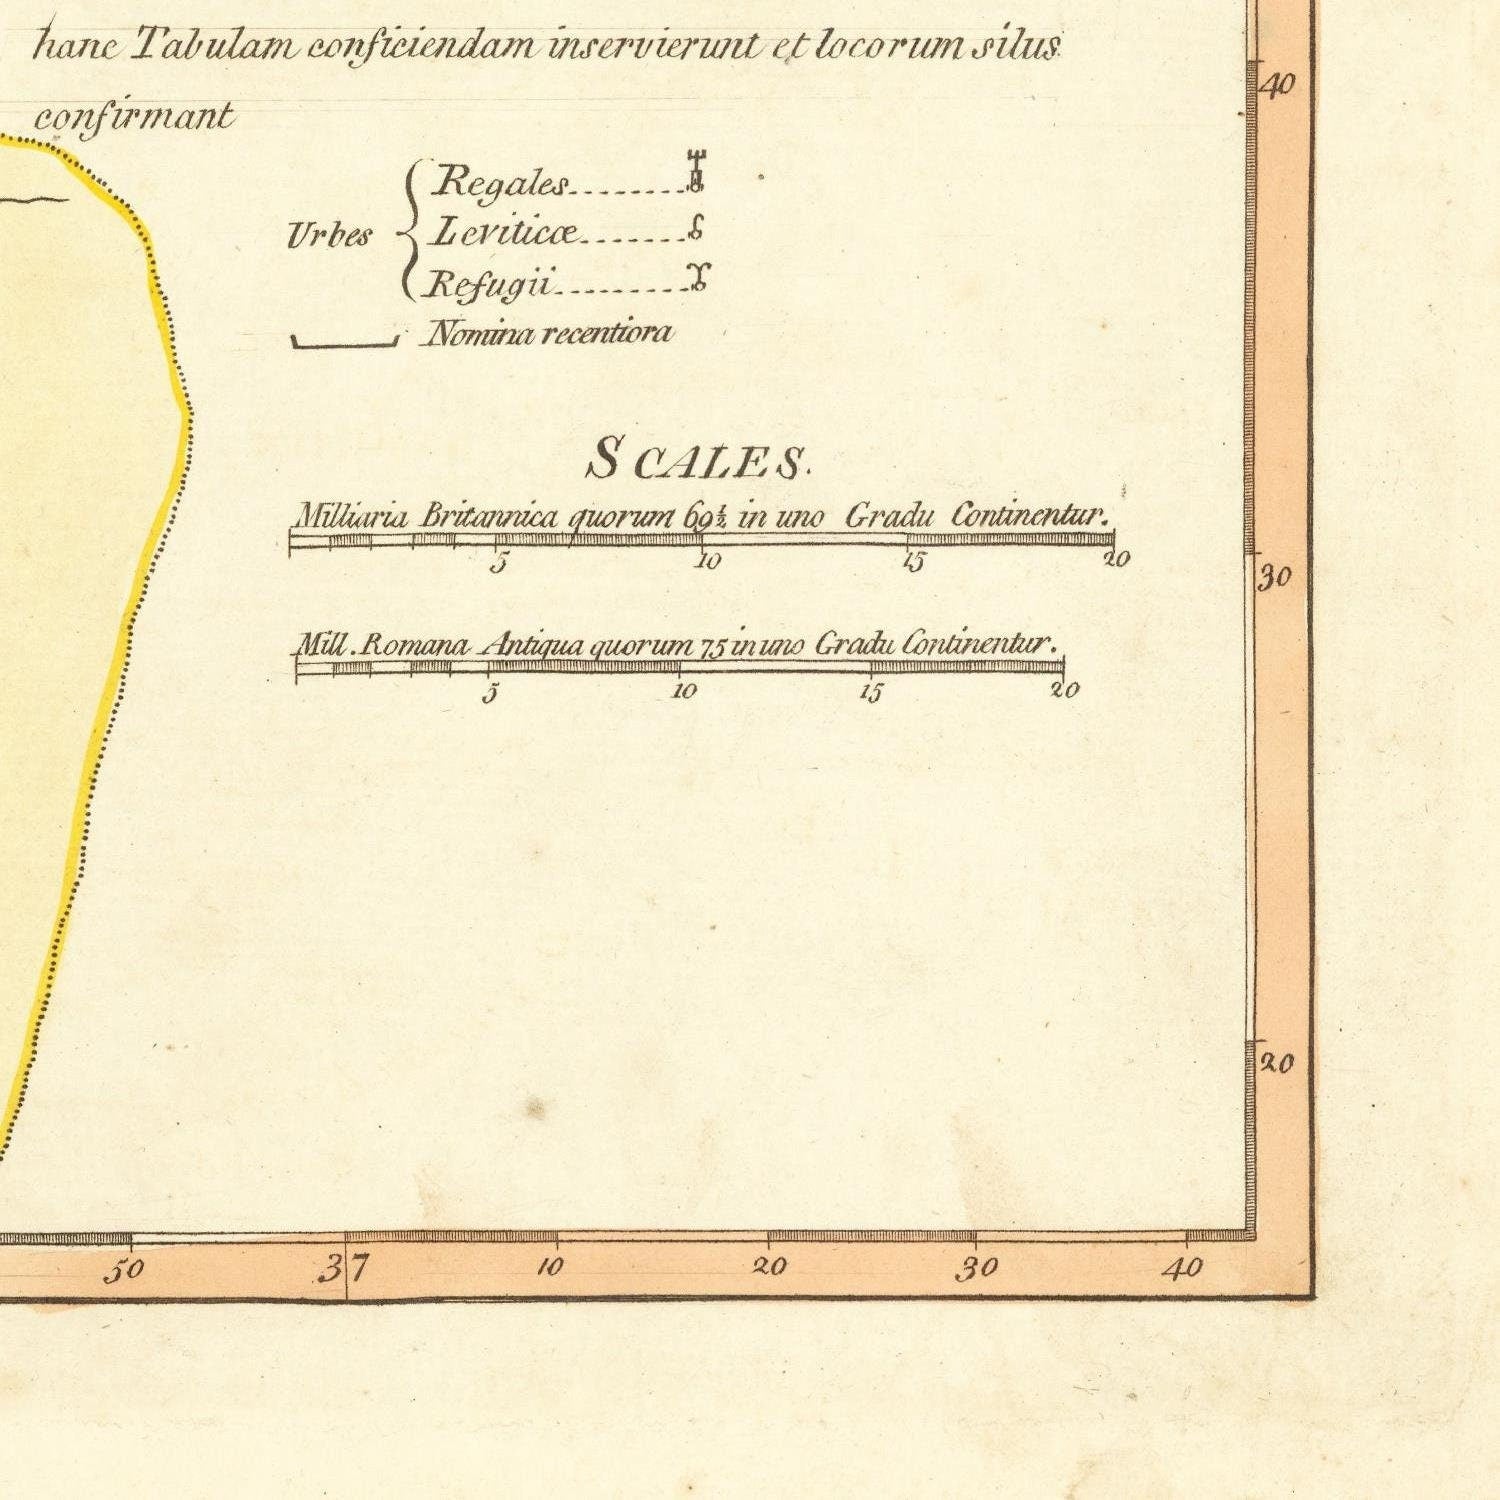 hanc Tabulam conficiendam inservierunt et locorum situs
confirmant
Urbes
Regales
Leviticæ
Refugii
Nomina recentiora
SCALES.
Milliaria Britannica quorum 69½ in uno Gradu Continentur.
5 10 15 20
Mill. Romana Antiqua quorum 75 in uno Gradu Continentur.
5 10 15 20
40
30
20
50 37 10 20 30 40